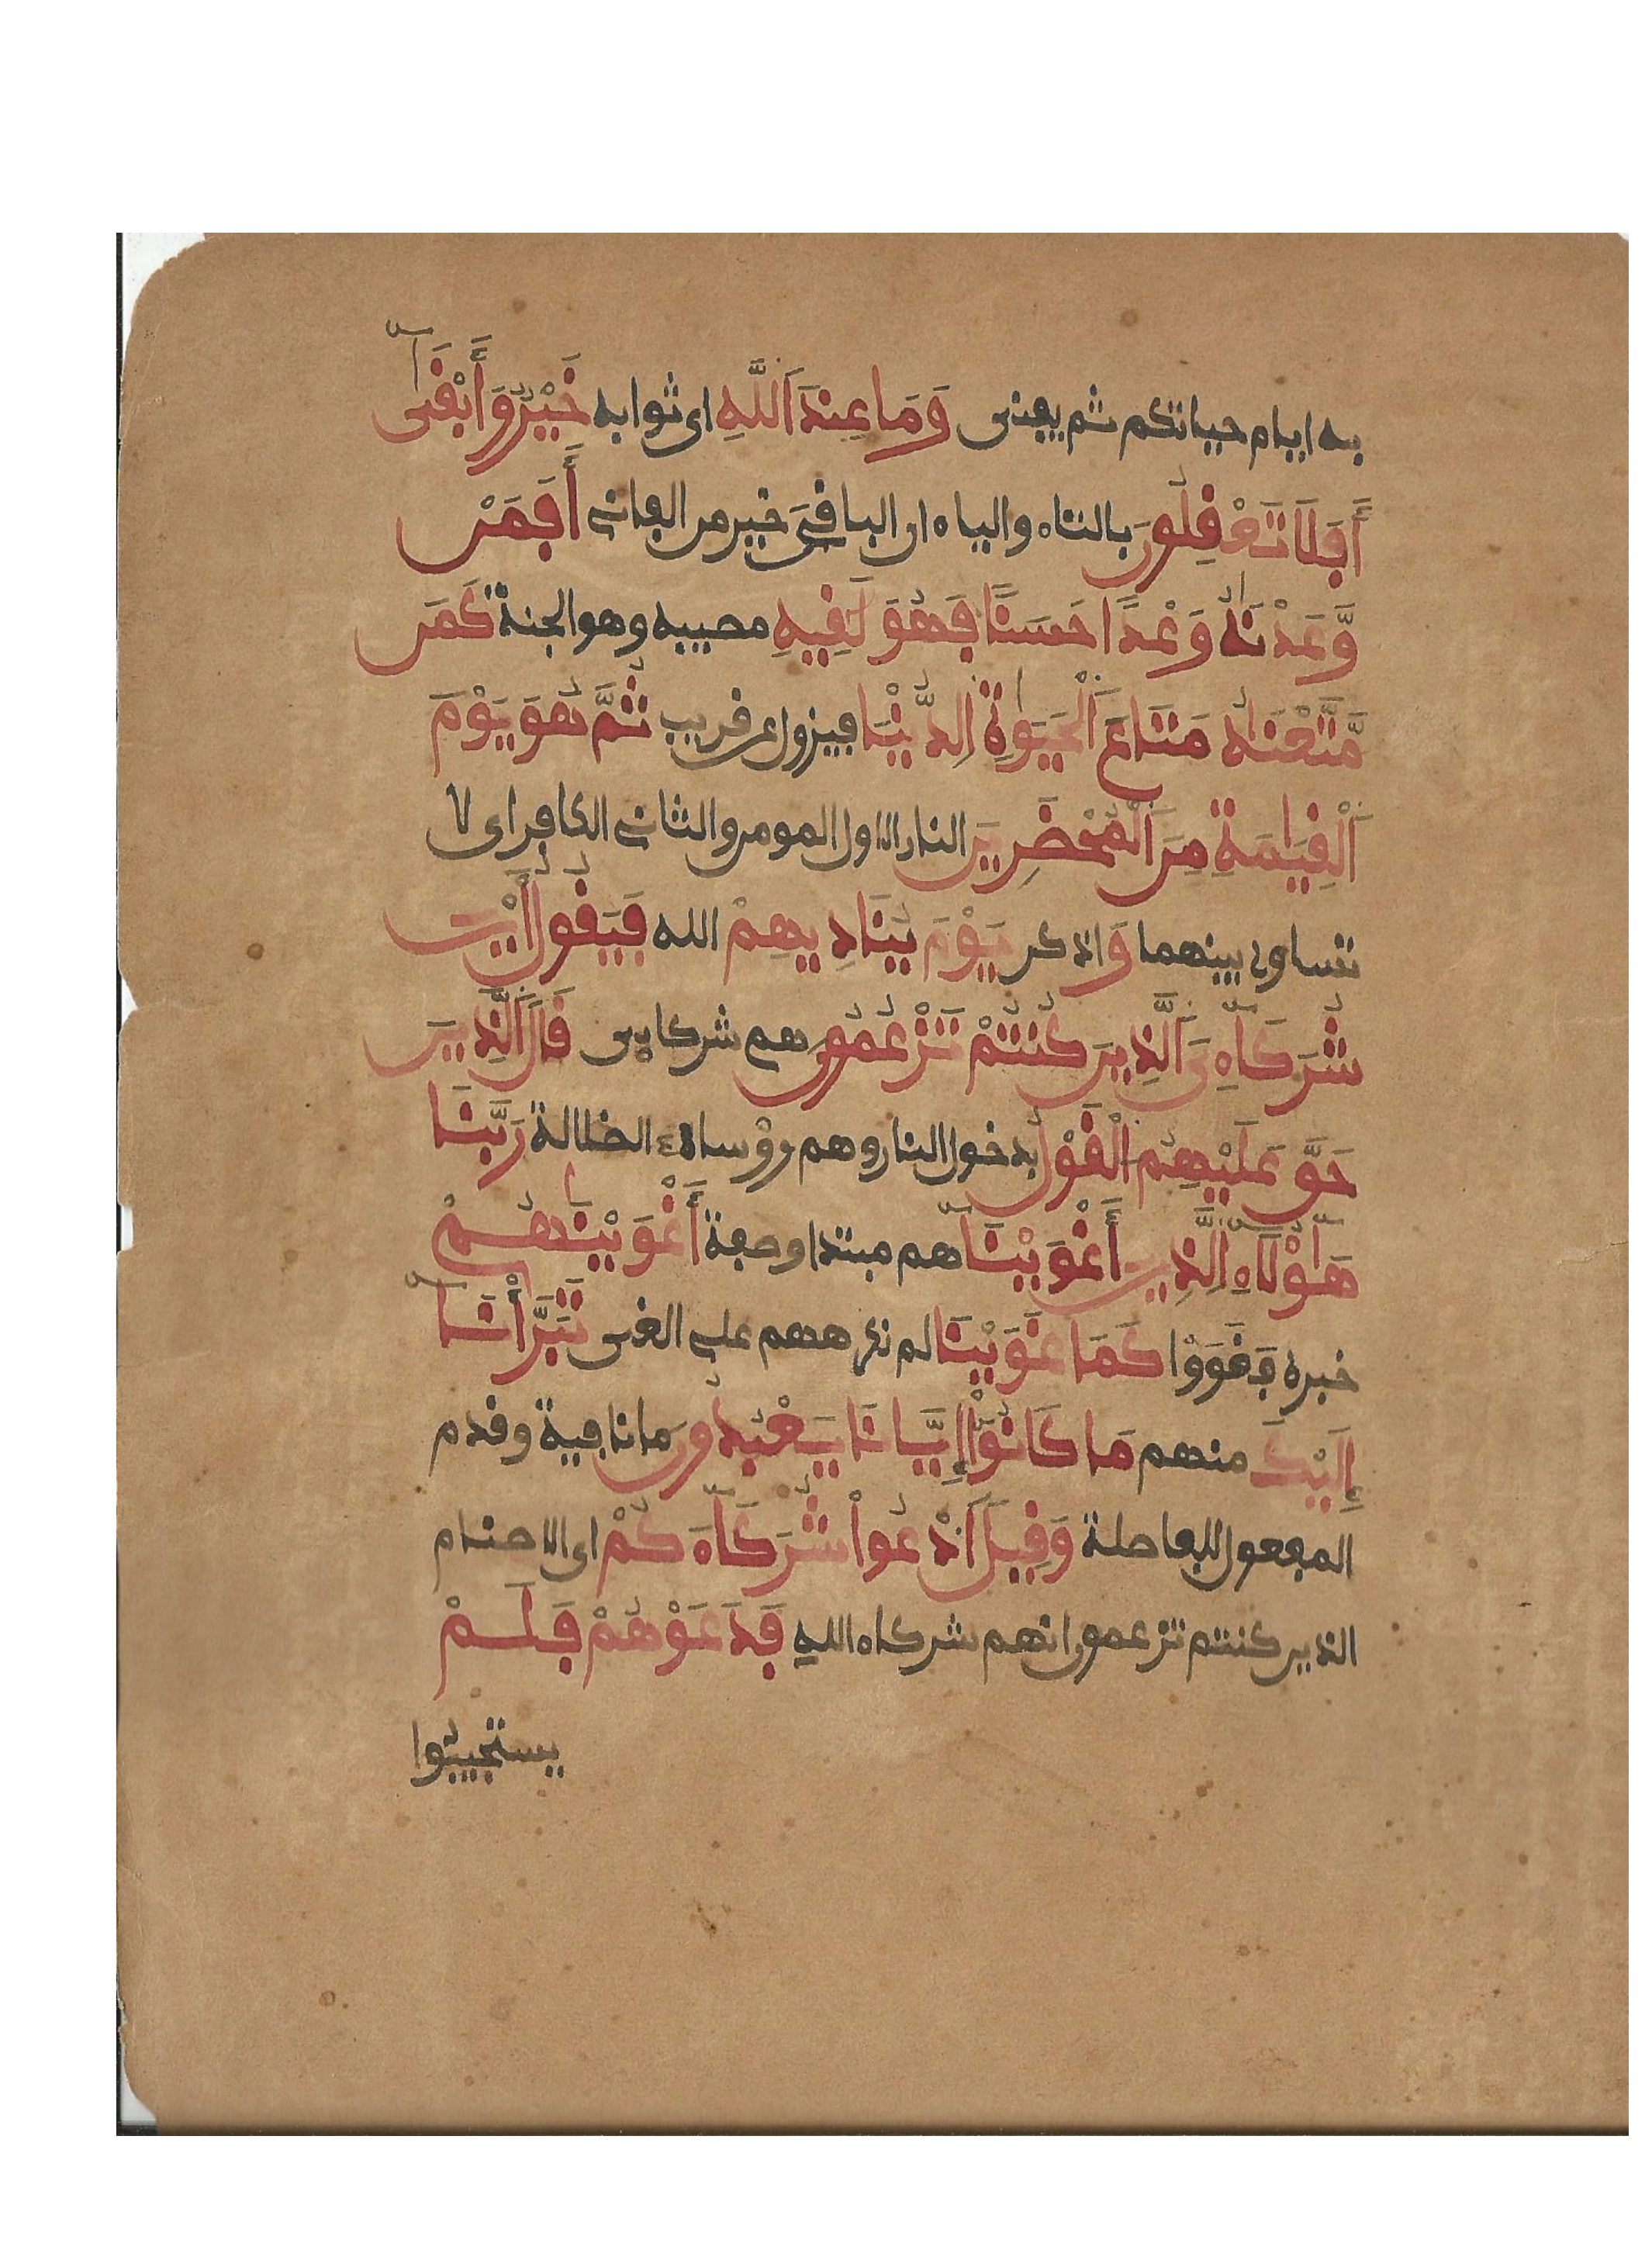 به ايام حياتكم ثم يفنى وَمَا عِندَ اَللَّهِ اى ثوابه خَيْرٌ وَأَبْقَىٰٓ
أَفَلَا تَعْقِلُونَ بالتاء والياء ان الباقىَ خير من الفانى أَفَمَنْ
وَّعَدْنَٰهُ وَعْدًا حَسَنًا فَهُوَ لَٰقِيهِ مصيبه وهو الجنة كَمَن
مَّتَّعْنَٰهُ مَتَاعَ اَلْحَيَوٰةِ اِلدُّنْيَا فيزول عن قريب ثُمَّ هُوَ يَوْمَ
اَلْقِيَٰمَةِ مِنَ اَلْمُحْضَرِينَ النار الاول المومن والثانى الكافر اى لا
تساوى بينهما وَ اذكر يَوْمَ يُنَادِيهِمْ الله فَيَقُولُ أَيْنَ
شُرَكَآءِىَ اَلَّذِينَ كُنتُمْ تَزْعُمُونَ هم شركايى قَالَ اَلَّذِينَ
حَقَّ عَلَيْهِمُ اُلْقَوْلُ بدخول النار وهم رؤساء الضلالة رَبَّنَا
هَٰٓؤُلَآءِ اِلَّذِينَ أَغْوَيْنَآ هم مبتدا وصفة أَغْوَيْنَٰهُمْ
خبره فَغَوَوْا كَمَا غَوَيْنَا لم نكرههم على الغى تَبَرَّأْنَآ
إِلَيْكَ منهم مَا كَانُوٓاْ إِيَّانَا يَعْبُدُونَ ما نافية وقدم
المفعول للفاصلة وَقِيلَ اَدْعُواْ شُرَكَآءَكُمْ اى الاصنام
الذين كنتم تزعمون انهم شركاء الله فَدَعَوْهُمْ فَلَمْ
يستجيبُوا